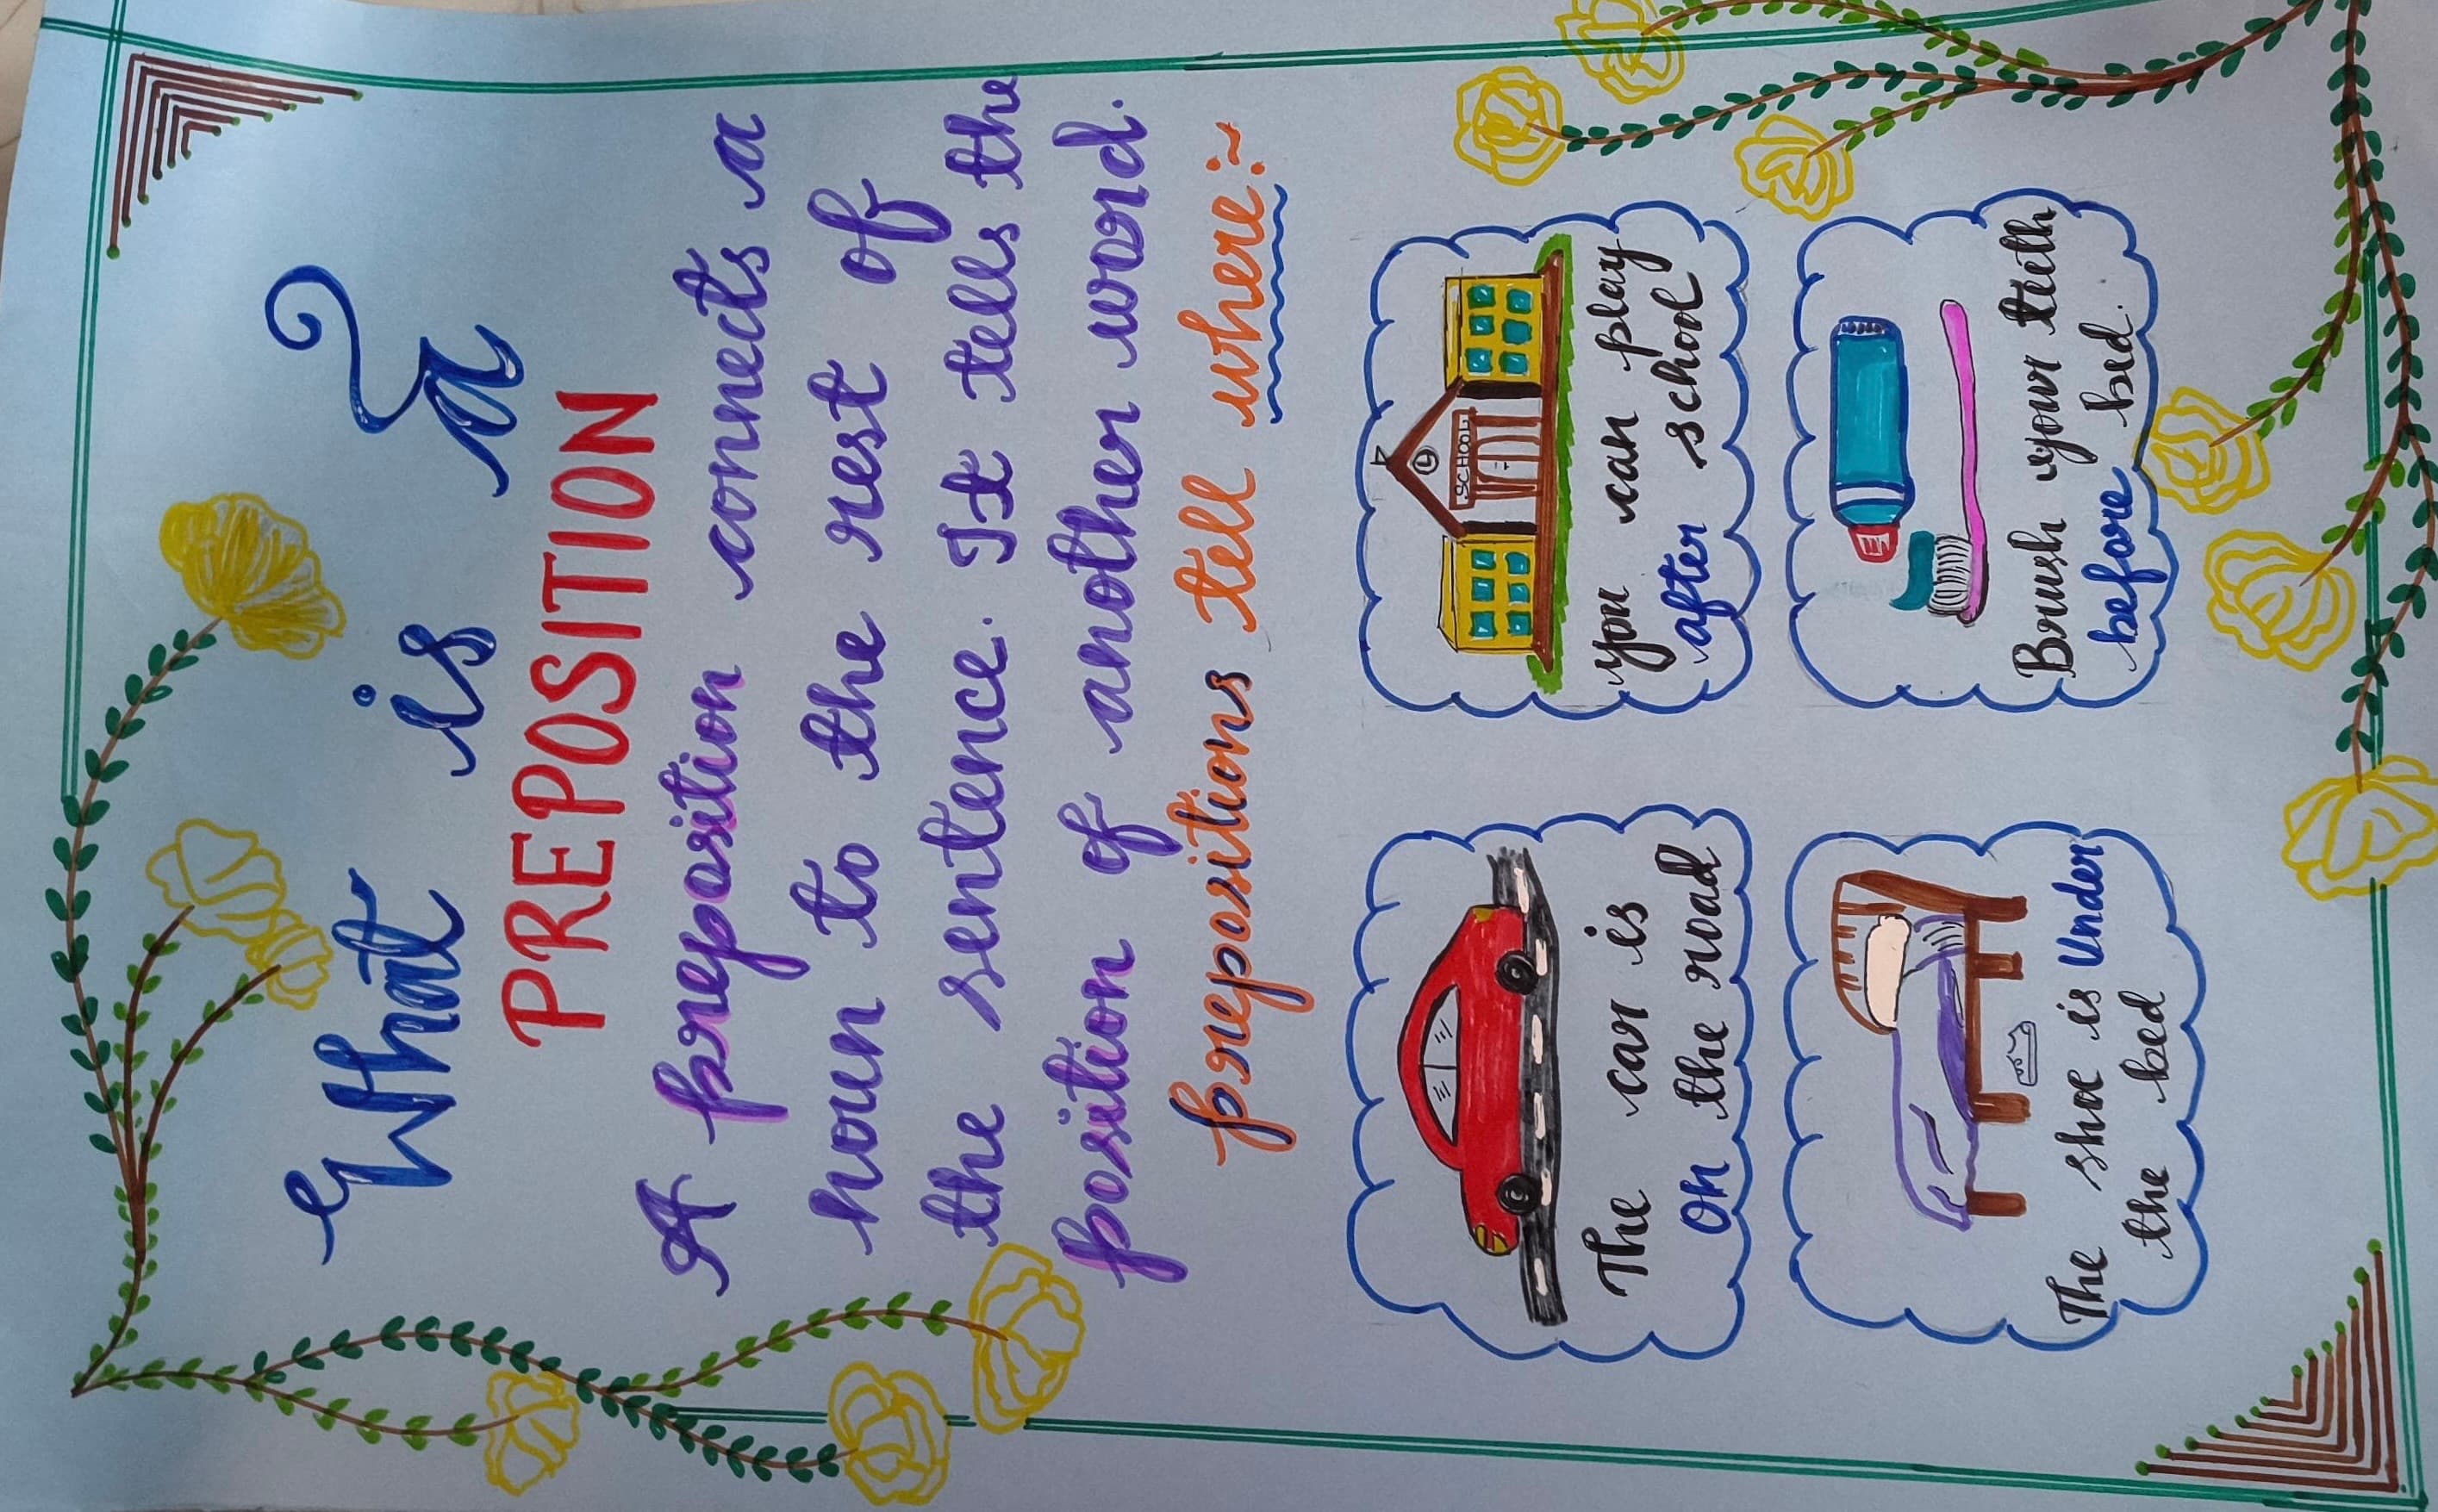 What is a
PREPOSITION
A preposition connects a
noun to the rest of
the sentence. It tells the
position of another word.
prepositions tell where:~
The car is
on the road
SCHOOL
you can play
after school
The shoe is Under
the bed
Brush your teeth
before bed.